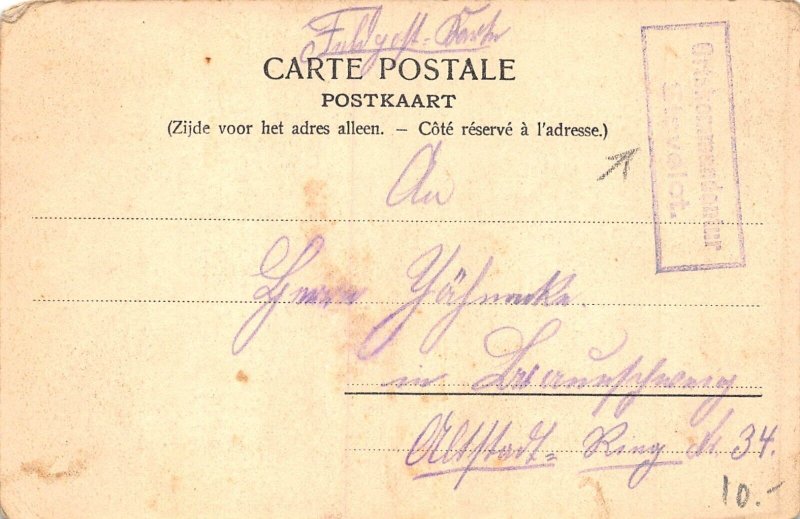 Feldpost-Karte
CARTE POSTALE
POSTKAART
(Zijde voor het adres alleen. – Côté réservé à l'adresse.)
Ortskommandantur
An
Herrn
in Braunschweig
Altstadt-Ring Nr 34.
10.-